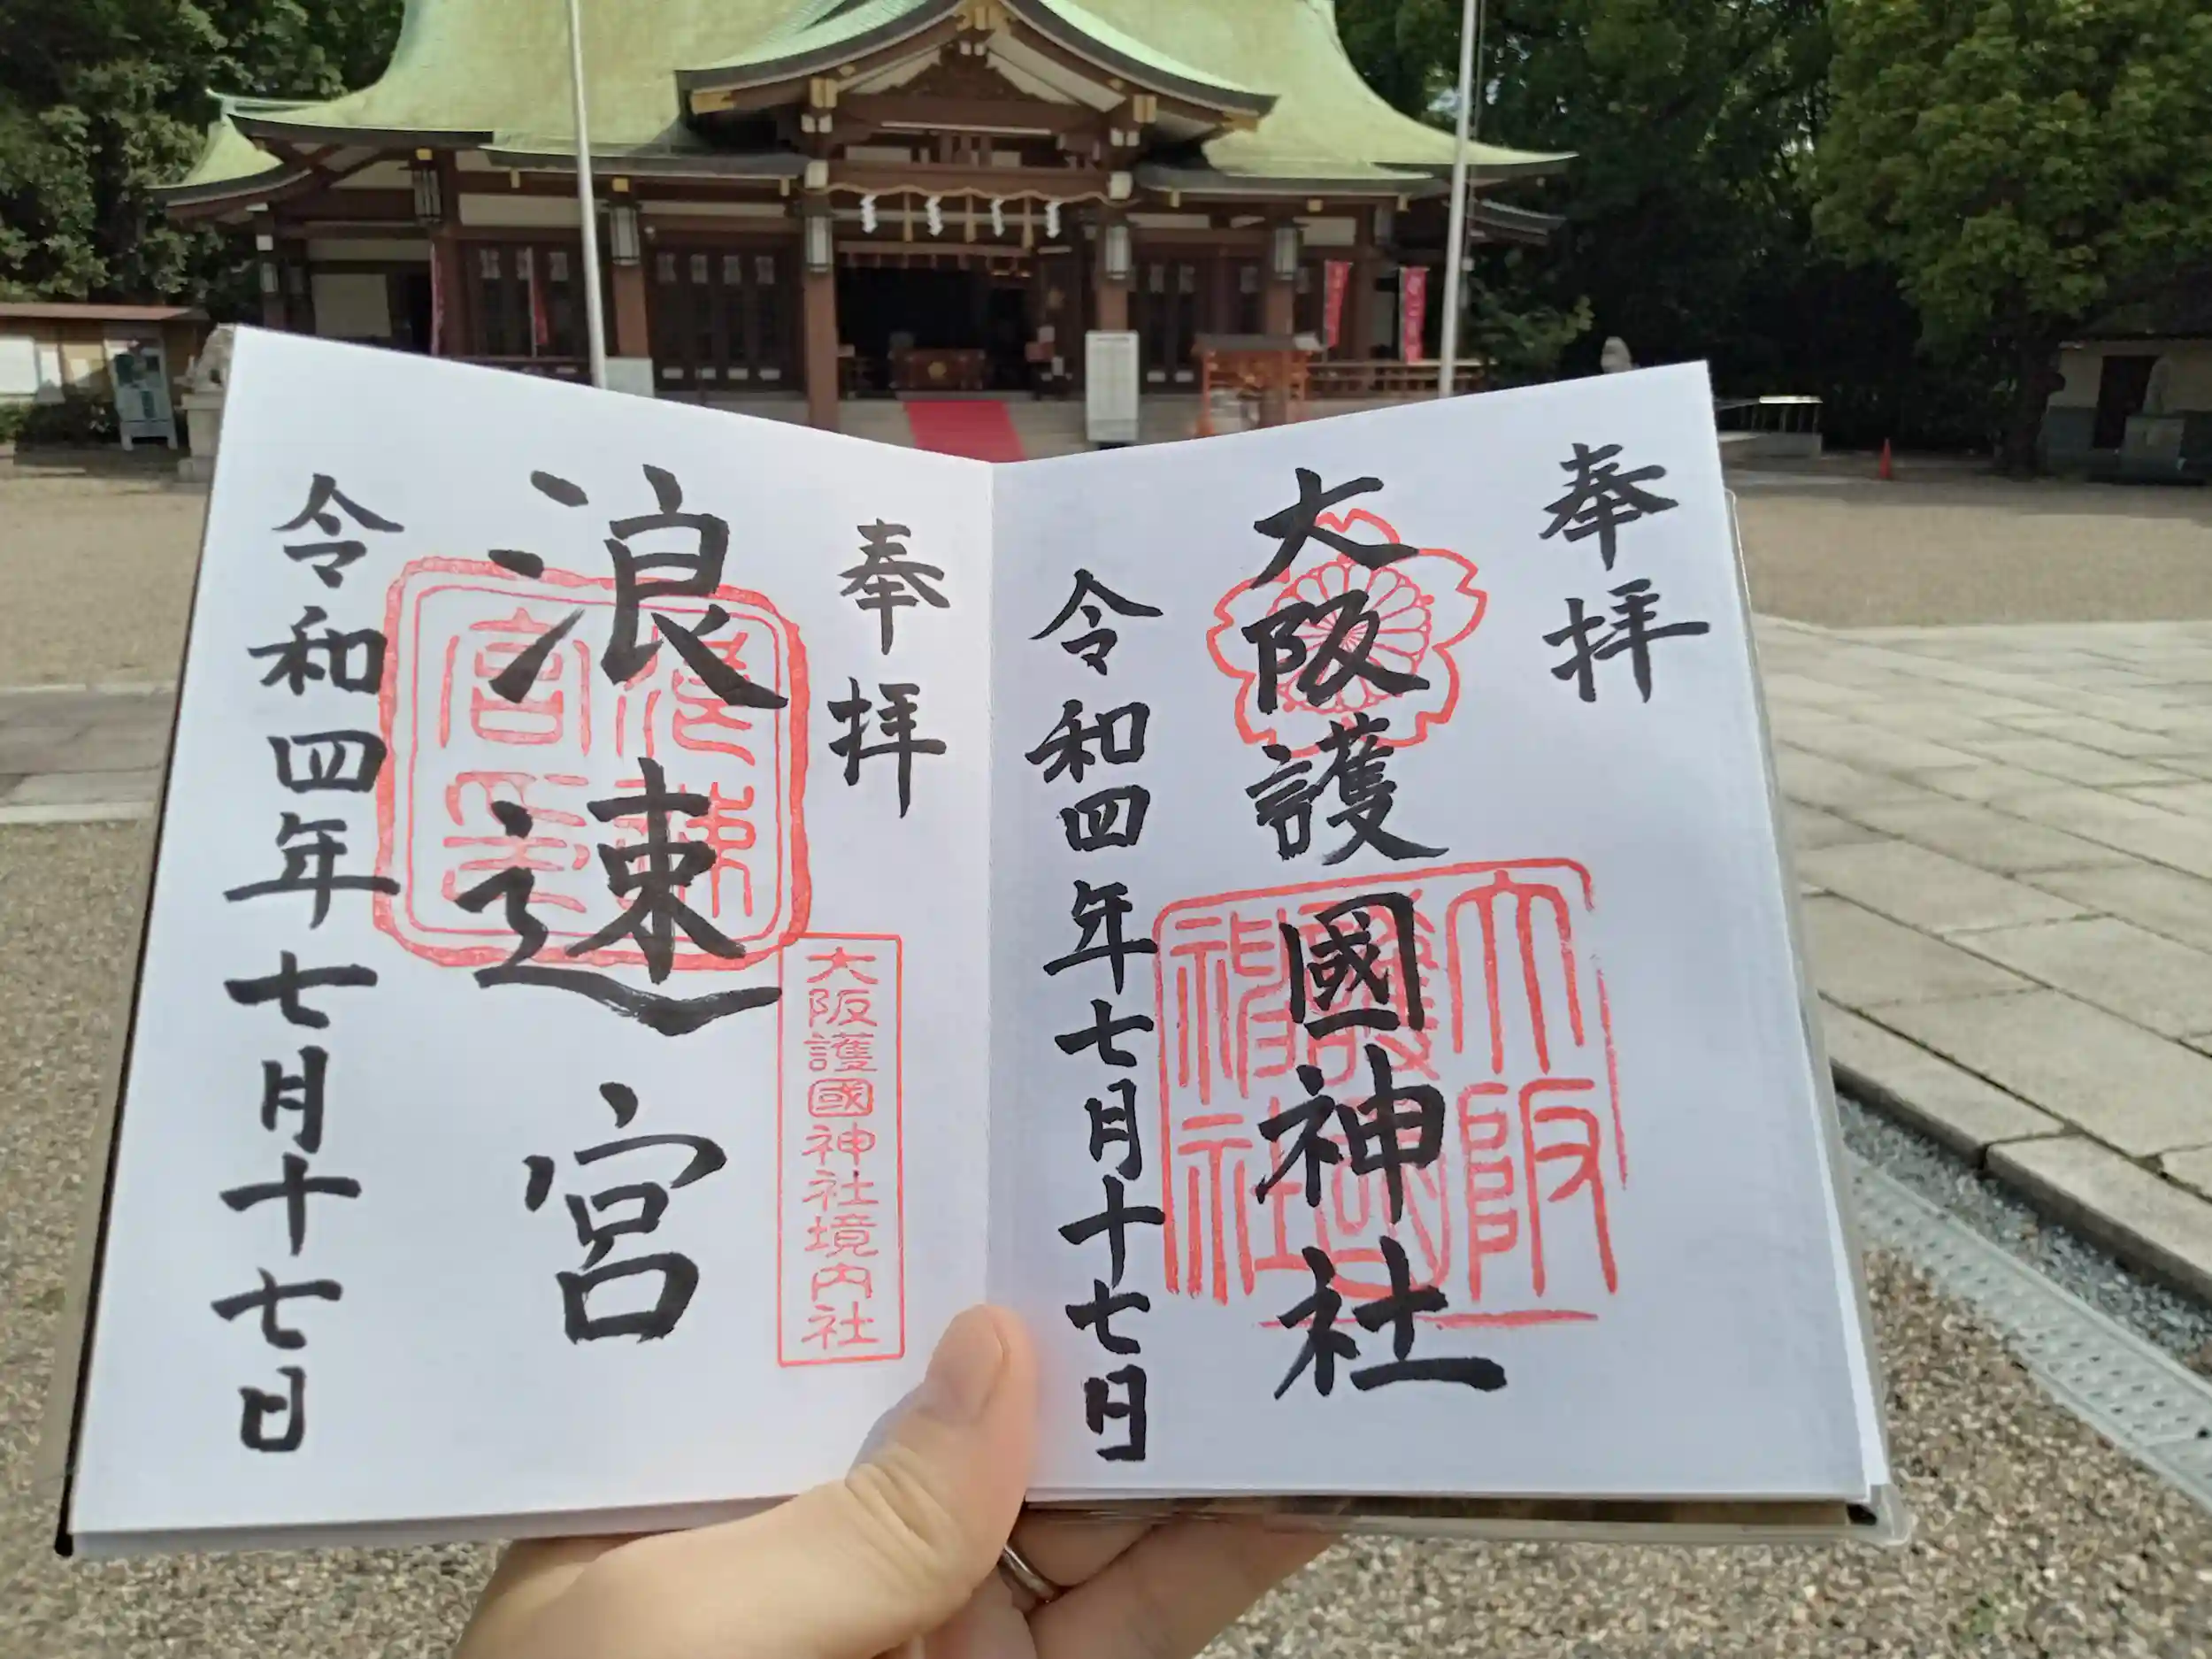 奉拝
大阪護國神社
令和四年七月十七日
大阪護國神社
奉拝
浪速宮
令和四年七月十七日
浪速宮印
大阪護國神社境内社